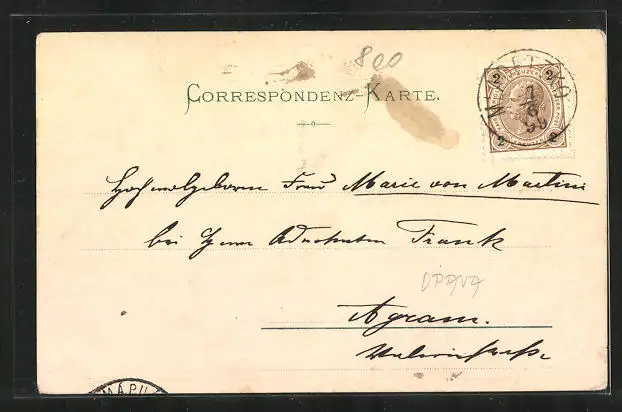 800
CORRESPONDENZ-KARTE.
2 2
Hochwolgeboren Frau Marie von Martini
bei Herrn Advokaten Frank
OPAVA
Agram.